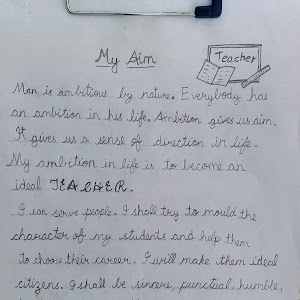 My Aim
Teacher
Man is ambitious by nature. Everybody has
an ambition in his life. Ambition gives us aim.
It gives us a sense of direction in life.
My ambition in life is to become an
ideal TEACHER.
I can serve people. I shall try to mould the
character of my students and help them
to choose their career. I will make them ideal
citizens. I shall be sincere, punctual, humble,